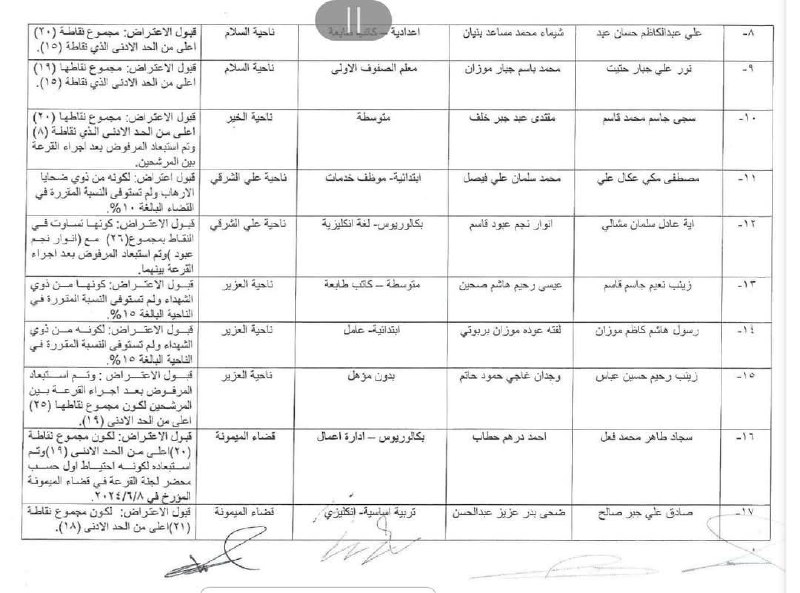 ٨- علي عبدالكاظم حسان عبد شيماء محمد مساعد بنيان اعدادية – كاتب طابعة ناحية السلام قبول الاعتراض: مجموع نقاطة (٢٠)
اعلى من الحد الادنى الذي نقاطة (١٥).
٩- نور علي جبار حتيت محمد باسم جبار موزان معلم الصفوف الاولى ناحية السلام قبول الاعتراض: مجموع نقاطها (١٩)
اعلى من الحد الادنى الذي نقاطة (١٥).
١٠- سجى جاسم محمد قاسم مقتدى عبد جبر خلف متوسطة ناحية الخير قبول الاعتراض: مجموع نقاطها (٢٠)
اعلى من الحد الادنى الذي نقاطة (٨)
وتم استبعاد المرفوض بعد اجراء القرعة
بين المرشحين.
١١- مصطفى مكي عكال علي محمد سلمان علي فيصل ابتدائية- موظف خدمات ناحية علي الشرقي قبول اعتراض: لكونه من ذوي ضحايا
الارهاب ولم تستوفى النسبة المقررة في
القضاء البالغة ١٠%.
١٢- اية عادل سلمان مشالي انوار نجم عبود قاسم بكالوريوس- لغة انكليزية ناحية علي الشرقي قبول الاعتراض: كونها تساوت في
النقاط بمجموع(٢٦) مع (انوار نجم
عبود )وتم استبعاد المرفوض بعد اجراء
القرعة بينهما.
١٣- زينب نعيم جاسم قاسم عيسى رحيم هاشم صحين متوسطة – كاتب طابعة ناحية العزير قبول الاعتراض: كونها من ذوي
الشهداء ولم تستوفى النسبة المقررة في
الناحية البالغة ١٥%.
١٤- رسول هاشم كاظم موزان لفته عوده موزان بربوتي ابتدائية- عامل ناحية العزير قبول الاعتراض: لكونه من ذوي
الشهداء ولم تستوفى النسبة المقررة في
الناحية البالغة ١٥%.
١٥- زينب رحيم حسين عباس وجدان غاجي حمود حاتم بدون مؤهل ناحية العزير قبول الاعتراض : وتم استبعاد
المرفوض بعد اجراء القرعة بين
المرشحين لكون مجموع نقاطها (٢٥)
اعلى من الحد الادنى (١٩).
١٦- سجاد طاهر محمد فعل احمد درهم حطاب بكالوريوس – ادارة اعمال قضاء الميمونة قبول الاعتراض: لكون مجموع نقاطة
(٢٠)اعلى من الحد الادنى (١٩)وتم
استبعاده لكونه احتياط اول حسب
محضر لجنة القرعة في قضاء الميمونة
المؤرخ في ٢٠٢٤/٦/٨.
١٧- صادق علي جبر صالح ضحى بدر عزيز عبدالحسن تربية اساسية- انكليزي قضاء الميمونة قبول الاعتراض: لكون مجموع نقاطة
(٢١)اعلى من الحد الادنى (١٨).